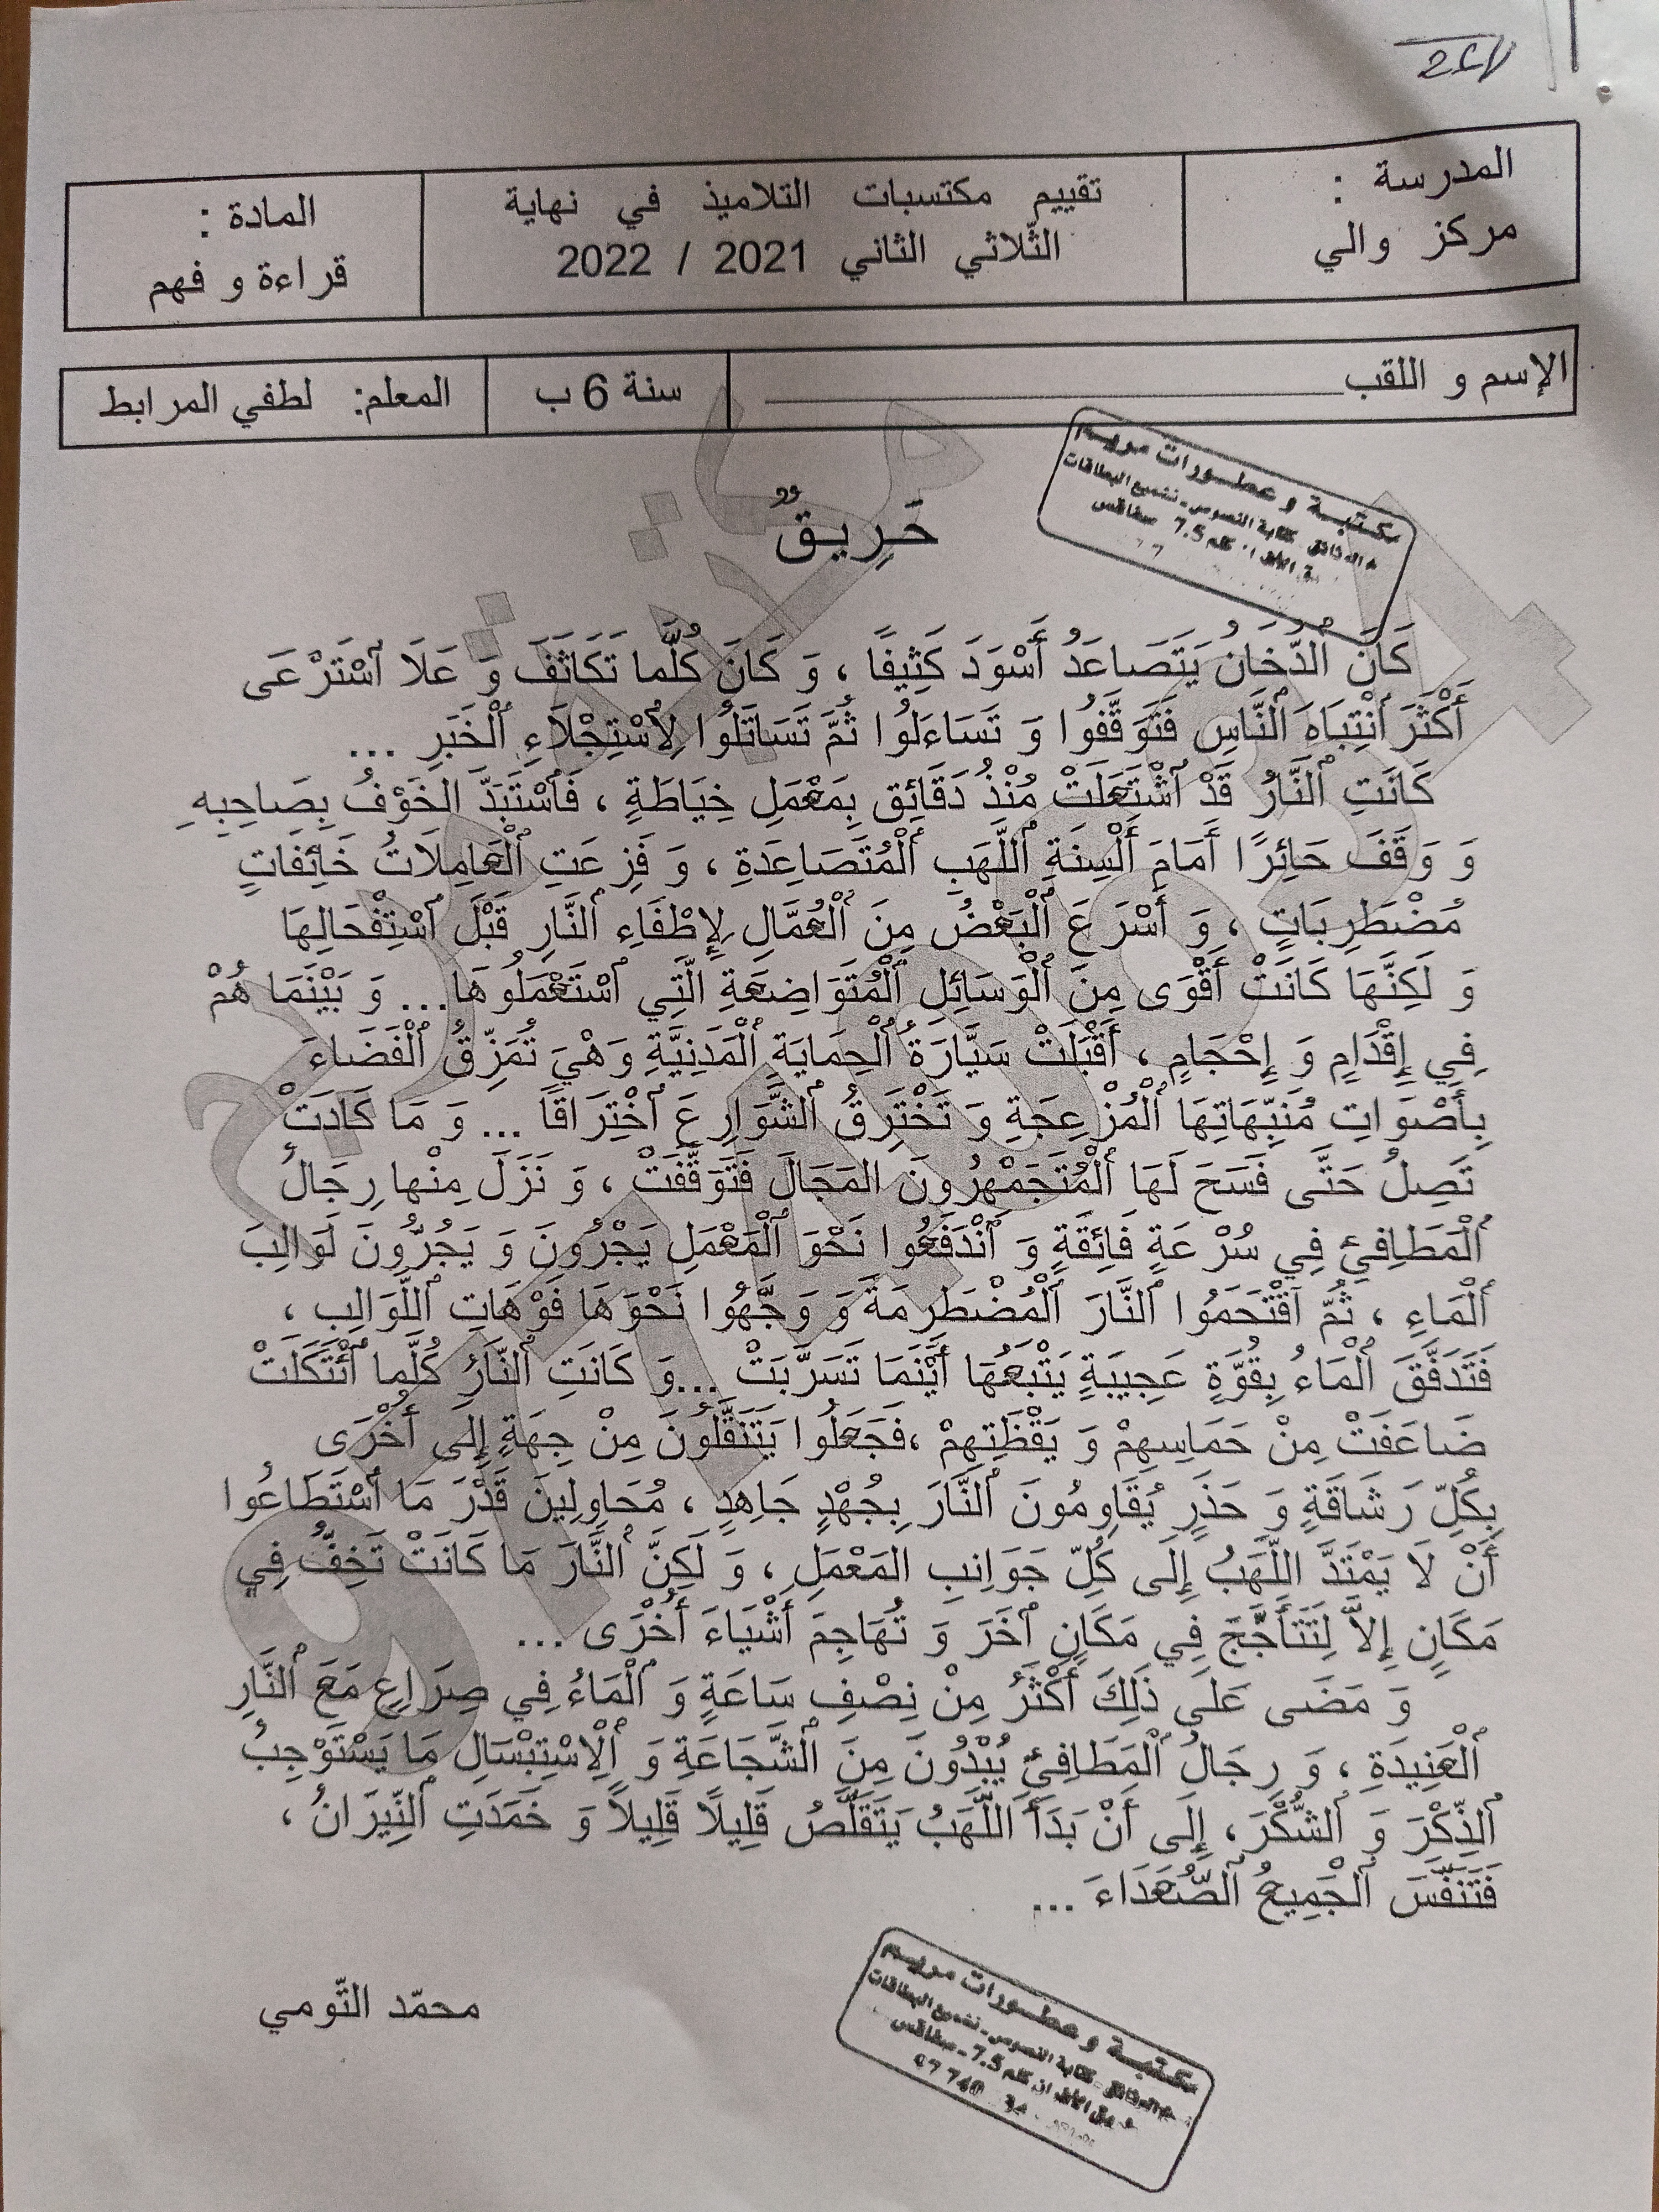 المدرسة :
مركز والي
تقييم مكتسبات التلاميذ في نهاية
الثّلاثي الثاني 2021 / 2022
المادة :
قراءة و فهم
الإسم و اللقب
سنة 6 ب
المعلم: لطفي المرابط
حَرِيقٌ
مكتبة و عطورات مريم
كَانَ ٱلدُّخَانُ يَتَصَاعَدُ أَسْوَدَ كَثِيفًا ، وَ كَانَ كُلَّما تَكَاثَفَ وَ عَلَا ٱسْتَرْعَى
أَكْثَرَ ٱنْتِبَاهَ ٱلنَّاسِ فَتَوَقَّفُوا وَ تَسَاءَلُوا ثُمَّ تَسَاتَلُوا لِٱسْتِجْلَاءِ ٱلْخَبَرِ ...
كَانَتِ ٱلنَّارُ قَدْ ٱشْتَعَلَتْ مُنْذُ دَقَائِق بِمَعْمَلِ خِيَاطَةٍ ، فَٱسْتَبَدَّ الخَوْفُ بِصَاحِبِهِ
وَ وَقَفَ حَائِرًا أَمَامَ أَلْسِنَةِ ٱللَّهَبِ ٱلْمُتَصَاعِدَةِ ، وَ فَزِعَتِ ٱلْعَامِلَاتُ خَائِفَاتٍ
مُضْطَرِبَاتٍ ، وَ أَسْرَعَ ٱلْبَعْضُ مِنَ ٱلْعُمَّالِ لِإِطْفَاءِ ٱلنَّارِ قَبْلَ ٱسْتِفْحَالِهَا
وَ لَكِنَّهَا كَانَتْ أَقْوَى مِنَ ٱلْوَسَائِلِ ٱلْمُتَوَاضِعَةِ الَّتِي ٱسْتَعْمَلُوهَا... وَ بَيْنَمَا هُمْ
فِي إِقْدَامٍ وَ إِحْجَامٍ ، أَقْبَلَتْ سَيَّارَةُ ٱلْحِمَايَةِ ٱلْمَدَنِيَّةِ وَهْيَ تُمَزِّقُ ٱلْفَضَاءَ
بِأَصْوَاتِ مُنَبِّهَاتِهَا ٱلْمُزْعِجَةِ وَ تَخْتَرِقُ ٱلشَّوَارِعَ ٱخْتِرَاقًا ... وَ مَا كَادَتْ
تَصِلُ حَتَّى فَسَحَ لَهَا ٱلْمُتَجَمْهِرُونَ المَجَالَ فَتَوَقَّفَتْ ، وَ نَزَلَ مِنْها رِجَالُ
ٱلْمَطَافِئِ فِي سُرْعَةٍ فَائِقَةٍ وَ ٱنْدَفَعُوا نَحْوَ ٱلْمَعْمَلِ يَجْرُونَ وَ يَجُرُّونَ لَوَالِبَ
ٱلْمَاءِ ، ثُمَّ ٱقْتَحَمُوا ٱلنَّارَ ٱلْمُضْطَرِمَةَ وَ وَجَّهُوا نَحْوَهَا فَوْهَاتِ ٱللَّوَالِبِ ،
فَتَدَفَّقَ ٱلْمَاءُ بِقُوَّةٍ عَجِيبَةٍ يَتْبَعُهَا أَيْنَمَا تَسَرَّبَتْ ...وَ كَانَتِ ٱلنَّارُ كُلَّما ٱئْتَكَلَتْ
ضَاعَفَتْ مِنْ حَمَاسِهِمْ وَ يَقْظَتِهِمْ ،فَجَعَلُوا يَتَنَقَّلُونَ مِنْ جِهَةٍ إِلَى أُخْرَى
بِكُلِّ رَشَاقَةٍ وَ حَذَرٍ يُقَاوِمُونَ ٱلنَّارَ بِجُهْدٍ جَاهِدٍ ، مُحَاوِلِينَ قَدْرَ مَا ٱسْتَطَاعُوا
أَنْ لَا يَمْتَدَّ اللَّهَبُ إِلَى كُلِّ جَوَانِبِ المَعْمَلِ ، وَ لَكِنَّ ٱلنَّارَ مَا كَانَتْ تَخِفُّ فِي
مَكَانٍ إِلاَّ لِتَتَأَجَّجَ فِي مَكَانٍ ٱخَرَ وَ تُهَاجِمَ أَشْيَاءَ أُخْرَى ...
وَ مَضَى عَلَى ذَلِكَ أَكْثَرُ مِنْ نِصْفِ سَاعَةٍ وَ ٱلْمَاءُ فِي صِرَاعٍ مَعَ ٱلنَّارِ
ٱلْعَنِيدَةِ ، وَ رِجَالُ ٱلْمَطَافِئِ يُبْدُونَ مِنَ ٱلشَّجَاعَةِ وَ ٱلْاِسْتِبْسَالِ مَا يَسْتَوْجِبُ
ٱلذِّكْرَ وَ ٱلشُّكْرَ، إِلَى أَنْ بَدَأَ ٱللَّهَبُ يَتَقَلَّصُ قَلِيلًا قَلِيلاً وَ خَمَدَتِ ٱلنِّيرَانُ ،
فَتَنَفَّسَ ٱلْجَمِيعُ ٱلصُّعَدَاءَ ...
محمّد التّومي
مكتبة و عطورات مريم